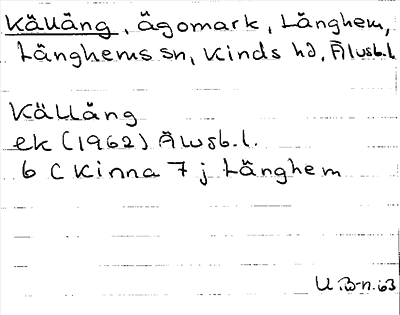 Källäng, ägomark, Länghem,
Länghems sn, Kinds hd, Älvsb.l.
Källäng
ek (1962) Älvsb.l.
6 C Kinna 7 j Länghem
U.B-n. 63